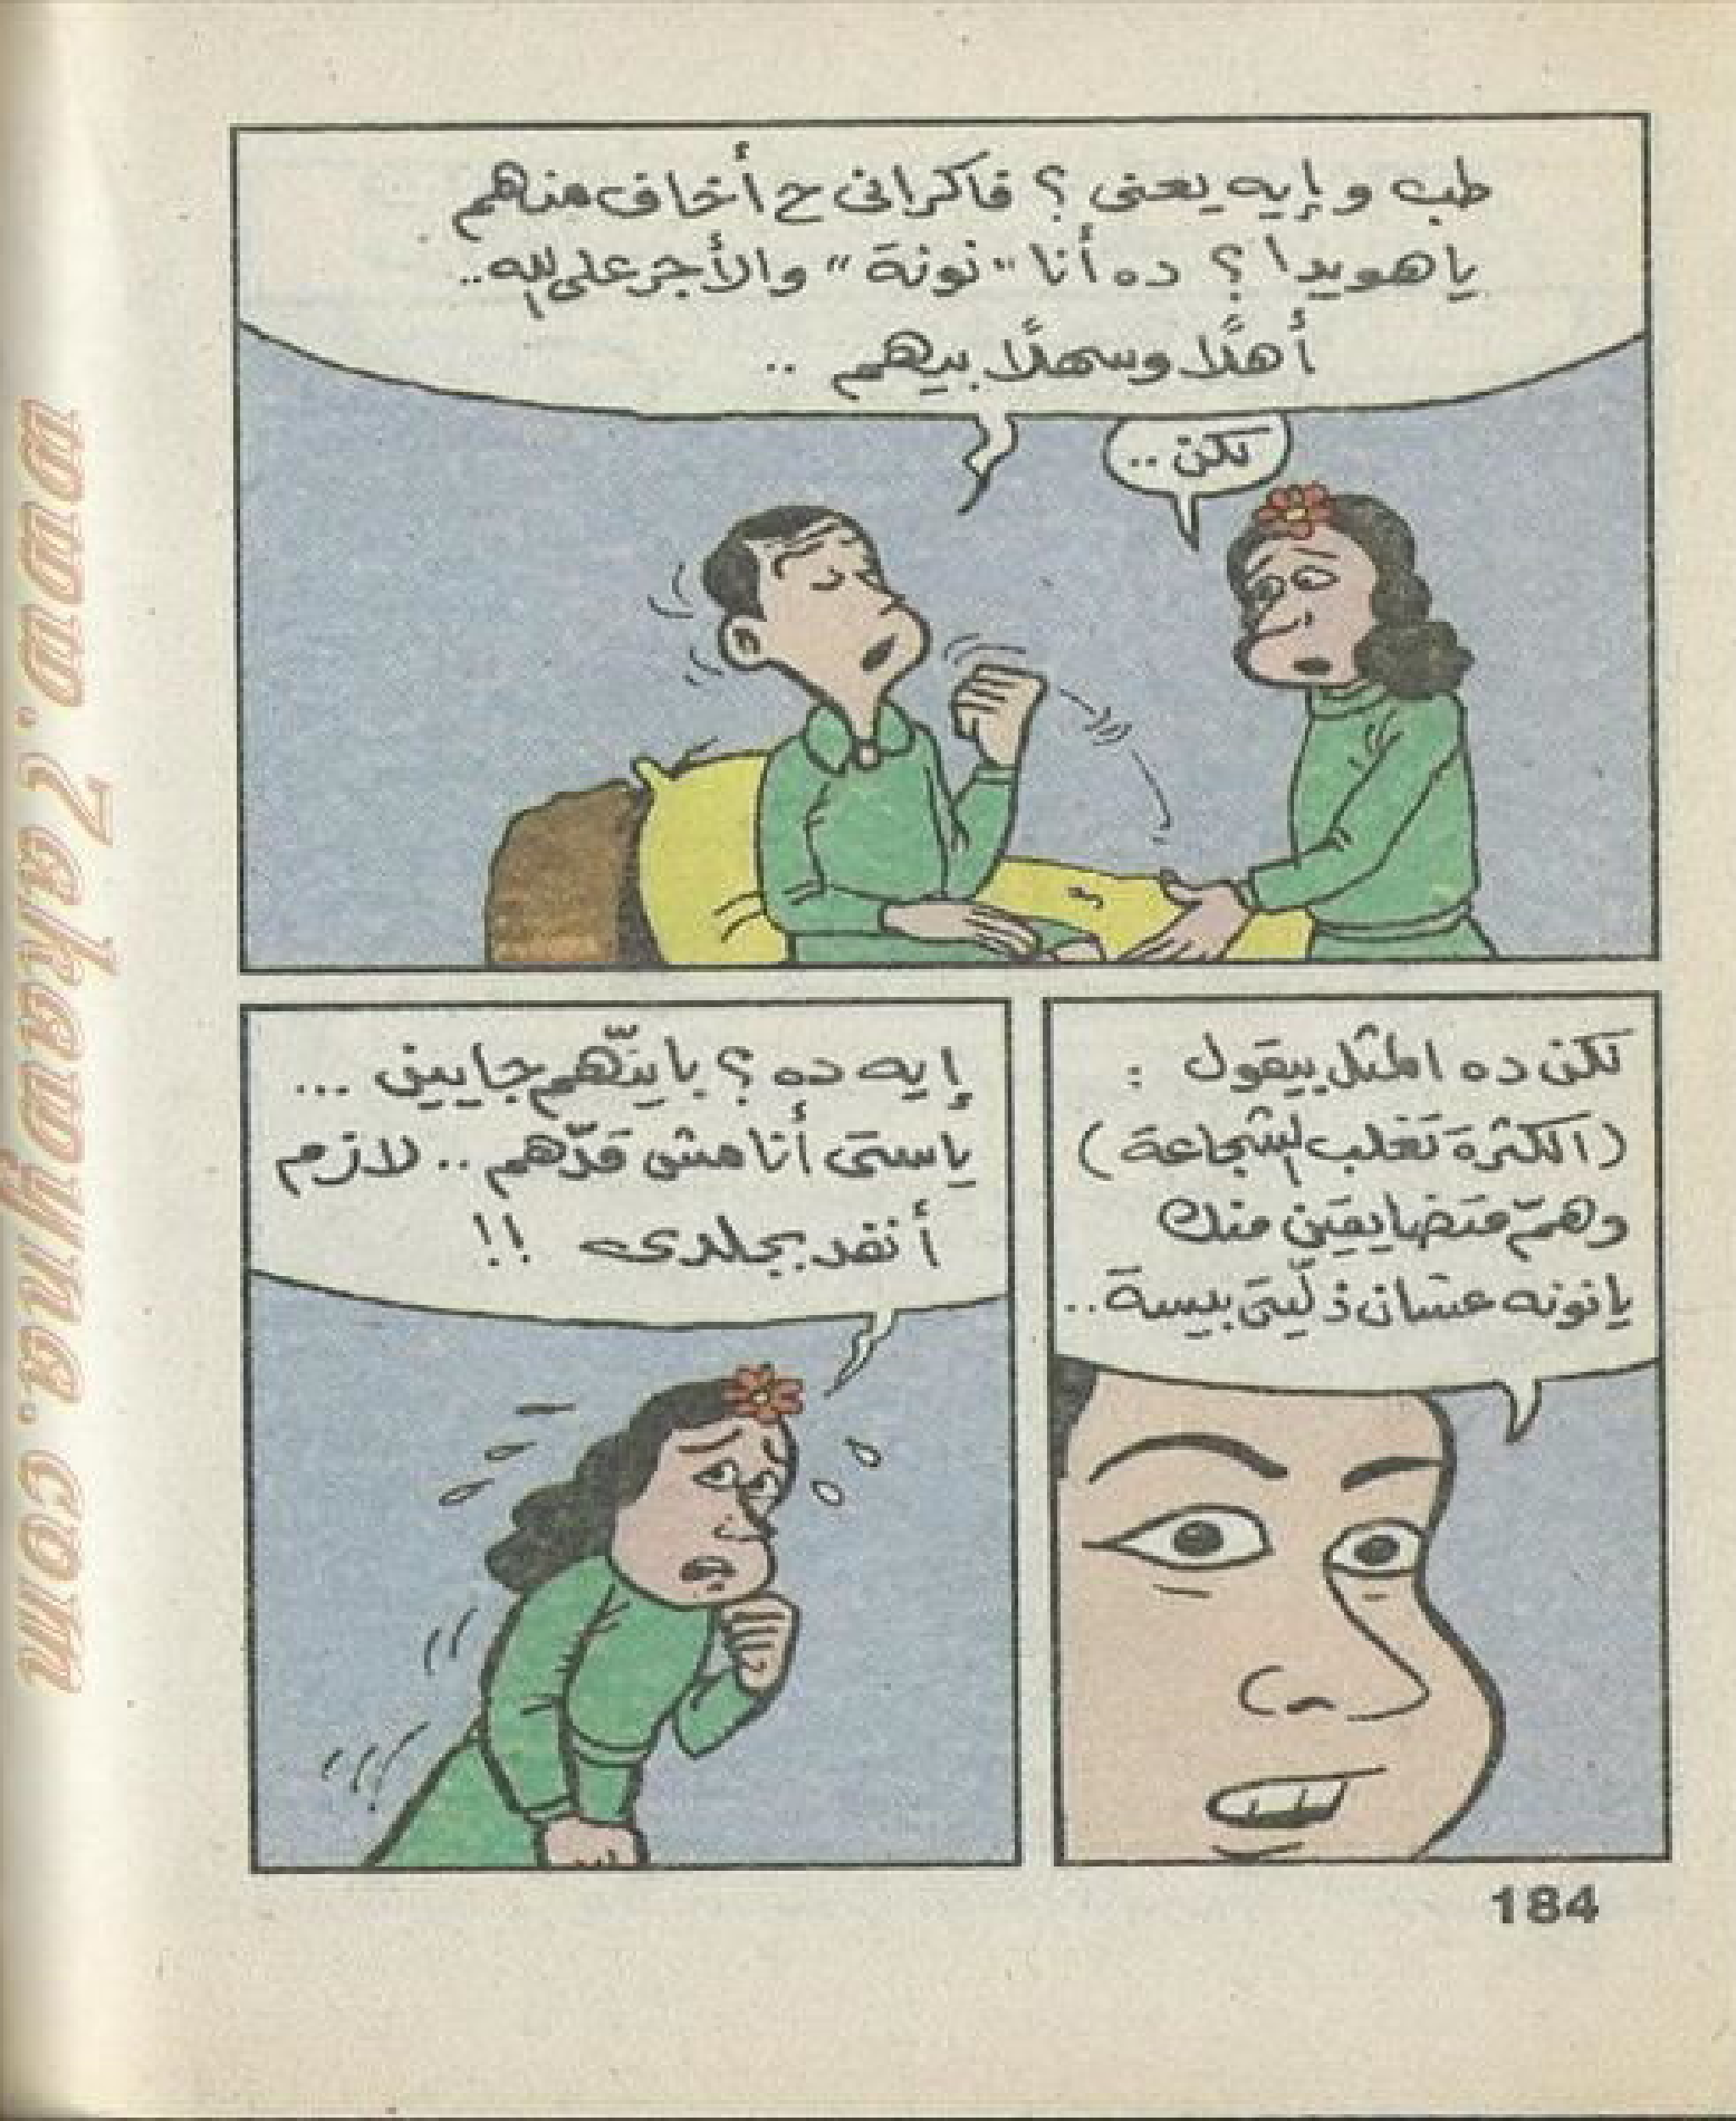 طب وإيه يعنى ؟ فاكرانى ح أخاف منهم
يا هويدا ؟ ده أنا "نونة" والأجر على الله..
أهلًا وسهلًا بيهم ..
لكن ..
لكن ده المثل بيقول :
(الكثرة تغلب الشجاعة)
وهمّ متضايقين منك
يا نونه عشان ذلّيتى بيسة..
إيه ده ؟ باينّهم جايين ...
ياستى أنا مش قدّهم .. لازم
أنفد بجلدى !!
184
www.7akawyuna.com